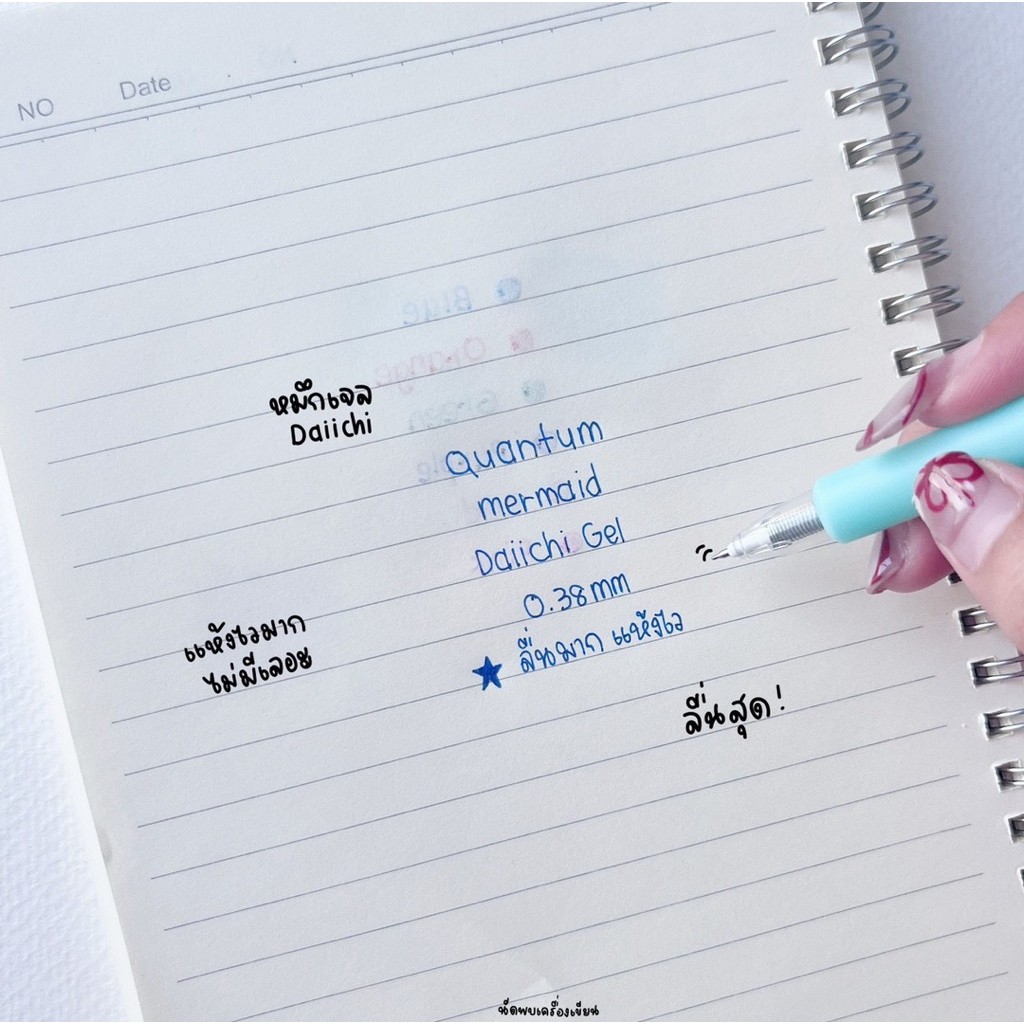 NO Date
Blue
Orange
Green
หมึกเจล
Daiichi
Quantum
mermaid
Daiichi Gel
0.38mm
★ ลื่นมาก แห้งไว
แห้งไวมาก
ไม่มีเลอะ
ลื่นสุด!
นัดพบเครื่องเขียน